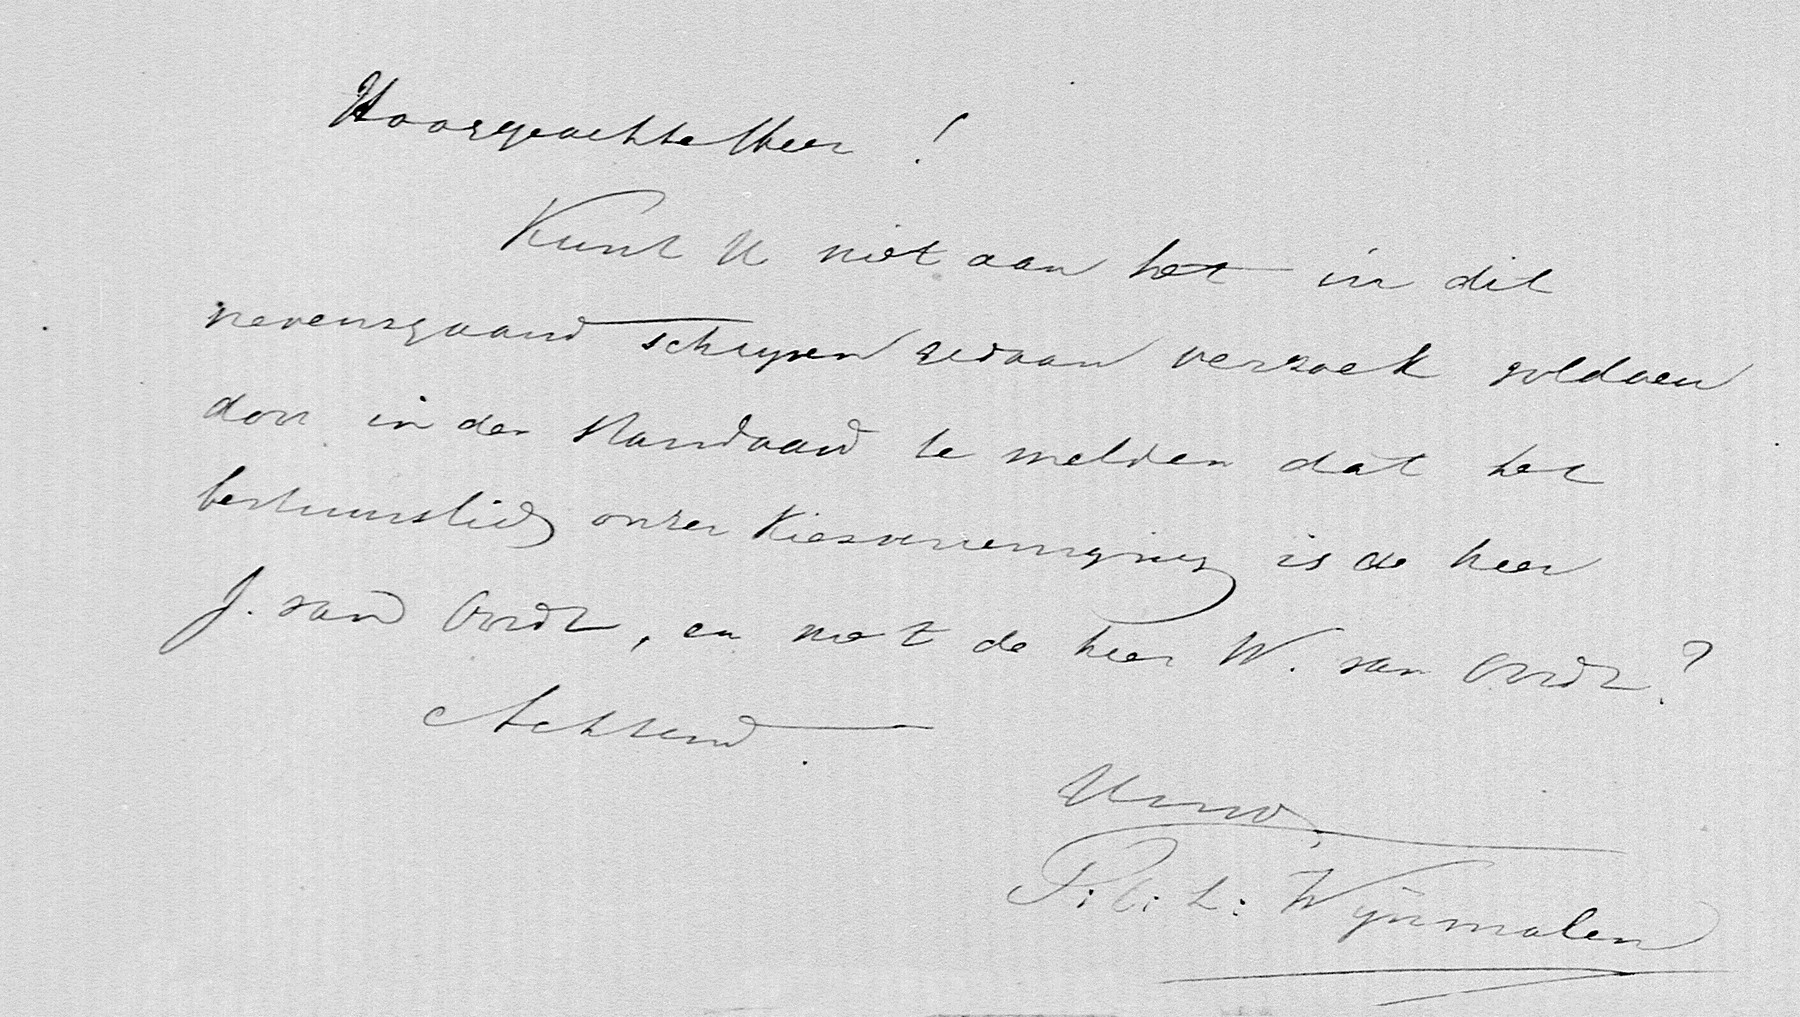 Hooggeachte Heer!
Kunt U niet aan het in dit
nevensgaand schrijven gedaan verzoek voldoen
door in den Standaard te melden dat het
bestuurslid onzer Kiesvereeniging is de heer
J. van Oordt, en niet de heer W. van Oordt?
Achtend.
Uwd,
P: C: L: Wijnmalen